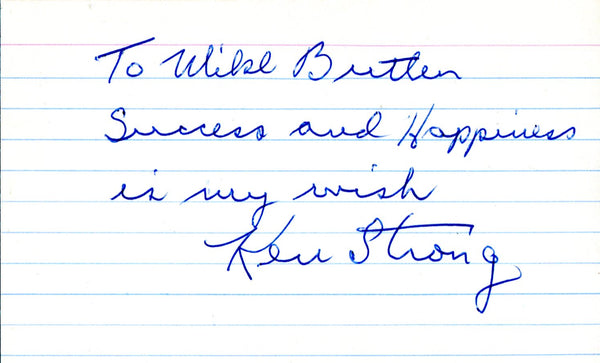 To Mike Butler
Success and Happiness
is my wish
Ken Strong